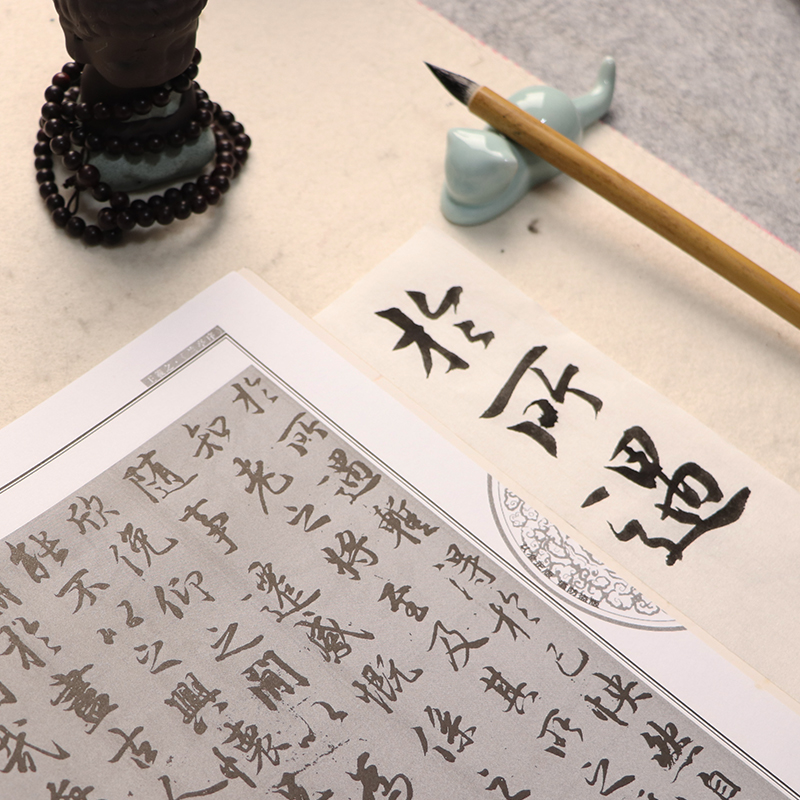 於所遇
於所遇蹔得於己快然自
知老之將至及其所之
隨事遷感慨係之
欣俛仰之閒以為
能不以之興懷
期於盡古人
哉